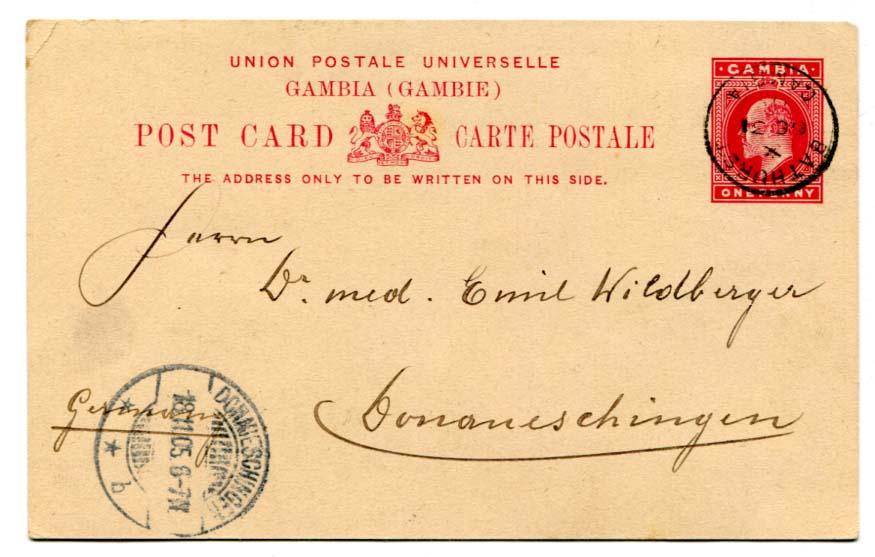 UNION POSTALE UNIVERSELLE
GAMBIA (GAMBIE)
POST CARD CARTE POSTALE
THE ADDRESS ONLY TO BE WRITTEN ON THIS SIDE.
GAMBIA
ONE PENNY
BATHURST
Herrn
Dr. med. Emil Wildberger
Donaueschingen
Germany
DONAUESCHINGEN
11.05. 6-7N
b